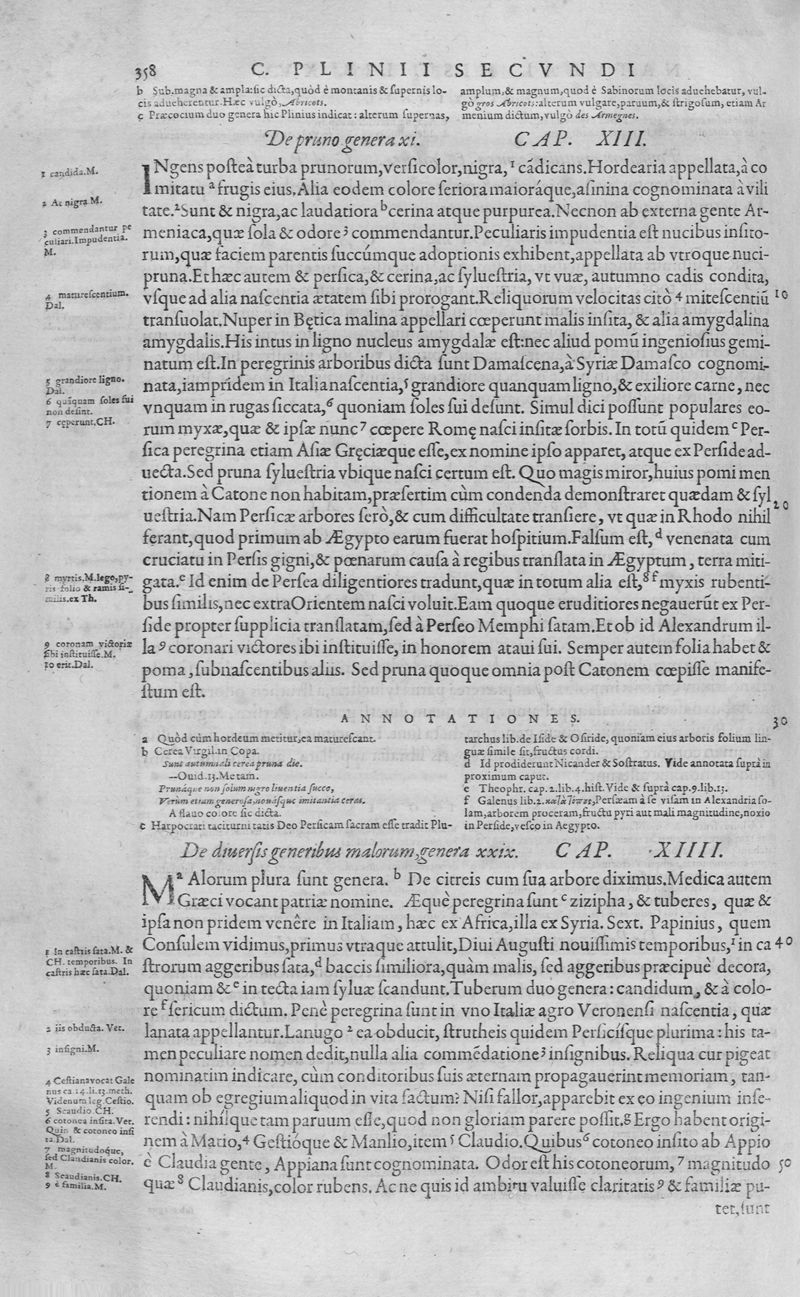 358 C. PLINII SECVNDI
b Sub.magna & ampla:sic dicta,quòd è montanis & supernis lo-
cis adueherentur.Hæc vulgò,Abricots.
c Præcocium duo genera hic Plinius indicat: alterum supernas,
amplum,& magnum,quod è Sabinorum locis aduehebatur, vul-
gò gros Abricots:alterum vulgare,paruum,& strigosum, etiam Ar
menium dictum,vulgò des Armegnes.
De pruno genera xi. CAP. XIII.
INgens posteà turba prunorum,versicolor,nigra,1 cādicans.Hordearia appellata,à co
mitatu a frugis eius.Alia eodem colore seriora maioráque,asinina cognominata à vili
tate.2Sunt & nigra,ac laudatiora b cerina atque purpurea.Necnon ab externa gente Ar-
meniaca,quæ sola & odore3 commendantur.Peculiaris impudentia est nucibus insito-
rum,quæ faciem parentis succúmque adoptionis exhibent,appellata ab vtroque nuci-
pruna.Et hæc autem & persica,& cerina,ac syluestria, vt vuæ, autumno cadis condita,
vsque ad alia nascentia ætatem sibi prorogant.Reliquorum velocitas citò 4 mitescentiū 10
transuolat.Nuper in Bętica malina appellari cœperunt malis insita, & alia amygdalina
amygdalis.His intus in ligno nucleus amygdalæ est:nec aliud pomū ingeniosius gemi-
natum est.In peregrinis arboribus dicta sunt Damascena,à Syriæ Damasco cognomi-
nata,iampridem in Italia nascentia,5 grandiore quanquam ligno,& exiliore carne, nec
vnquam in rugas siccata,6 quoniam soles sui desunt. Simul dici possunt populares eo-
rum myxæ,quæ & ipsæ nunc7 cœpere Romę nasci insitæ sorbis. In totū quidem c Per-
sica peregrina etiam Asiæ Gręciæque esse,ex nomine ipso apparet, atque ex Perside ad-
uecta.Sed pruna syluestria vbique nasci certum est. Quo magis miror,huius pomi men
tionem à Catone non habitam,præsertim cùm condenda demonstraret quædam & syl 20
uestria.Nam Persicæ arbores serò,& cum difficultate transiere, vt quæ in Rhodo nihil
ferant,quod primum ab Ægypto earum fuerat hospitium.Falsum est, d venenata cum
cruciatu in Persis gigni,& pœnarum causa à regibus translata in Ægyptum , terra miti-
gata.e Id enim de Persea diligentiores tradunt,quæ in totum alia est,8 f myxis rubenti-
bus similis,nec extra Orientem nasci voluit.Eam quoque eruditiores negauerūt ex Per-
side propter supplicia translatam,sed à Perseo Memphi satam.Et ob id Alexandrum il-
la 9 coronari victores ibi instituisse, in honorem ataui sui. Semper autem folia habet &
poma , subnascentibus aliis. Sed pruna quoque omnia post Catonem cœpisse manife-
stum est.
1 candida.M.
2 Ac nigra M.
3 commendantur pe
culiari.Impudentia.
M.
4 maturescentium.
Dal.
5 grandiore ligno.
Dal.
6 quāquam soles sui
non desint.
7 cęperunt.CH.
8 myrtis.M.lego,py-
ris folio & ramis si-
milis.ex Th.
9 coronam victoriæ
sibi instituisse.M.
10 erit.Dal.
ANNOTATIONES. 30
a Quòd cùm hordeum metitur,ea maturescant.
b Cerea Virgil.in Copa.
Sunt autumnali cerea pruna die.
—Ouid.13.Metam.
Prunáque non solum nigro liuentia succo,
Verùm etiam generosa,nouásque imitantia ceras.
A flauo colore sic dicta.
c Harpocrati taciturnitatis Deo Persicam sacram esse tradit Plu-
tarchus lib.de Iside & Osiride, quoniam eius arboris folium lin-
guæ simile sit,fructus cordi.
d Id prodiderunt Nicander & Sostratus. Vide annotata suprà in
proximum caput.
e Theophr. cap.2.lib.4.hist.Vide & suprà cap.9.lib.13.
f Galenus lib.2.κατὰ τόπους,Persæam à se visam in Alexandria so-
lam,arborem proceram,fructu pyri aut mali magnitudine,noxio
in Perside,vesco in Aegypto.
De diuersis generibus malorum,genera xxix. CAP. XIIII.
Ma Alorum plura sunt genera. b De citreis cum sua arbore diximus.Medica autem
Græci vocant patriæ nomine. Æquè peregrina sunt c zizipha , & tuberes, quæ &
ipsa non pridem venêre in Italiam , hæc ex Africa,illa ex Syria. Sext. Papinius , quem
Consulem vidimus,primus vtraque attulit,Diui Augusti nouissimis temporibus,1 in ca 40
strorum aggeribus sata,d baccis similiora,quàm malis, sed aggeribus præcipuè decora,
quoniam & e in tecta iam syluæ scandunt.Tuberum duo genera: candidum , & à colo-
re f sericum dictum. Penè peregrina sunt in vno Italiæ agro Veronensi nascentia , quæ
lanata appellantur.Lanugo 2 ea obducit, strutheis quidem Persicisque plurima : his ta-
men peculiare nomen dedit,nulla alia commēdatione3 insignibus. Reliqua cur pigeat
nominatim indicare, cùm conditoribus suis æternam propagauerint memoriam , tan-
quam ob egregium aliquod in vita factum? Nisi fallor,apparebit ex eo ingenium inse-
rendi : nihilque tam paruum esse,quod non gloriam parere possit.g Ergo habent origi-
nem à Matio,4 Gestióque & Manlio,item 5 Claudio.Quibus6 cotoneo insito ab Appio
è Claudia gente , Appiana sunt cognominata. Odor est his cotoneorum,7 magnitudo 50
quæ8 Claudianis,color rubens. Ac ne quis id ambitu valuisse claritatis 9 & familiæ pu-
tet,sunt
1 In castris sata.M. &
CH. temporibus. In
castris hæc sata.Dal.
2 iis obducta. Vet.
3 insigni.M.
4 Cestiana vocat Gale
nus ca.14.li.13.meth.
Videnum leg.Cestio.
5 Scaudio CH.
6 cotonea insita.Vet.
Quin & cotoneo insi
ta.Dal.
7 magnitudoque,
sed Claudianis color.
M.
8 Scaudianis.CH.
9 è familia.M.